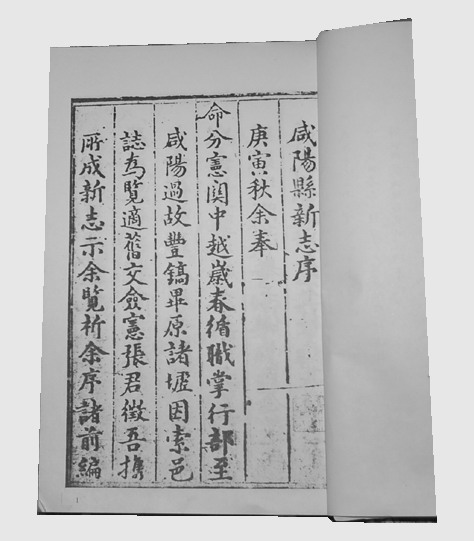 咸陽縣新志序
庚寅秋余奉
命分憲關中越歲春循職掌行部至
咸陽過故豐鎬畢原諸墟因索邑
誌為覽適舊交僉憲張君徵吾攜
所成新志示余覽析余序諸前編